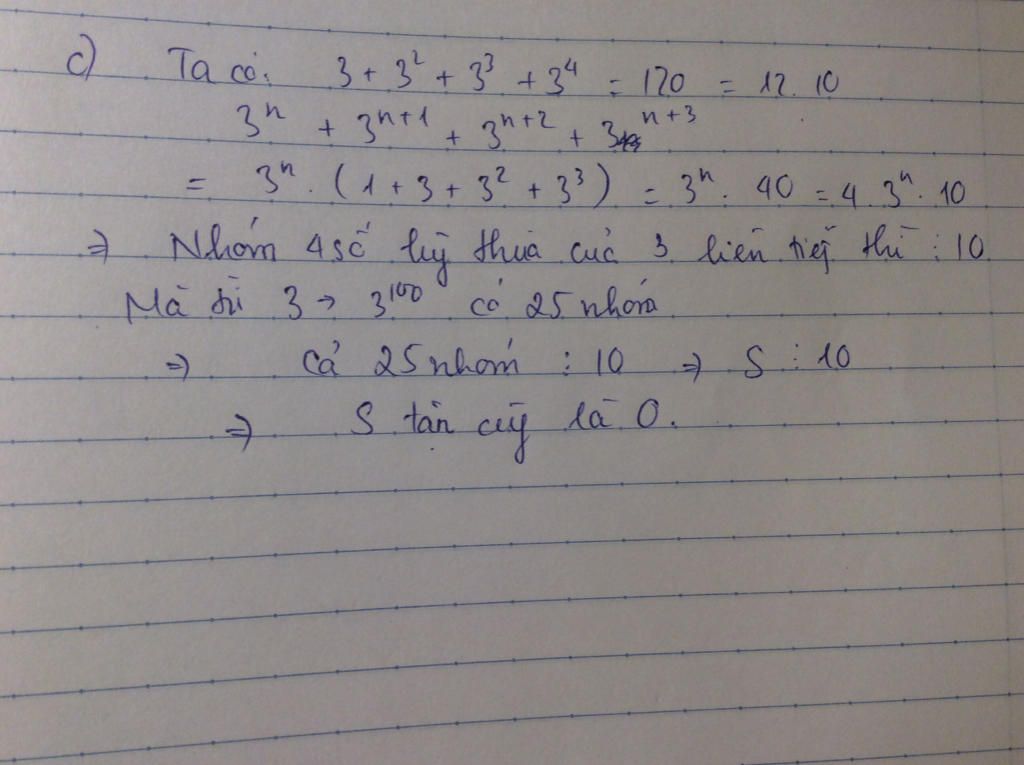 c) Ta có: 3 + 3² + 3³ + 3⁴ = 120 = 12.10
3ⁿ + 3ⁿ⁺¹ + 3ⁿ⁺² + 3ⁿ⁺³
= 3ⁿ . (1 + 3 + 3² + 3³) = 3ⁿ . 40 = 4 . 3ⁿ . 10
⇒ Nhóm 4 số lũy thừa của 3 liên tiếp thì ⋮ 10
Mà từ 3 → 3¹⁰⁰ có 25 nhóm
⇒ Cả 25 nhóm ⋮ 10 ⇒ S ⋮ 10
⇒ S tận cùg là 0.